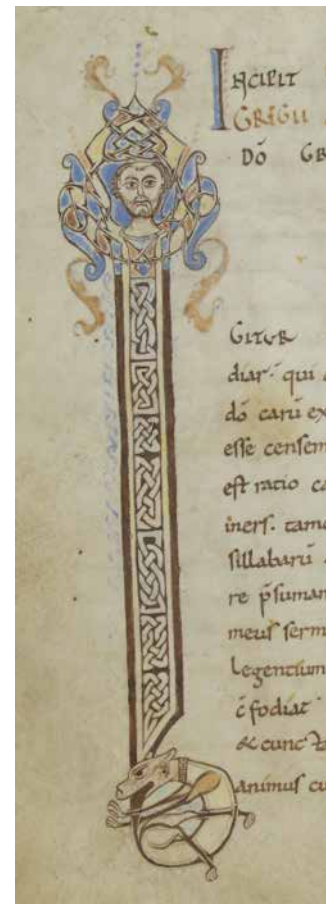 INCIPIT
GREGII
DŌ GR
GITUR
diar· qui
dō carū ex
esse censem
est ratio ca
iners· tame
sillabarū
re p̄suman
meus serm
Legentium
c̄fodiat
& cunc
animus cu